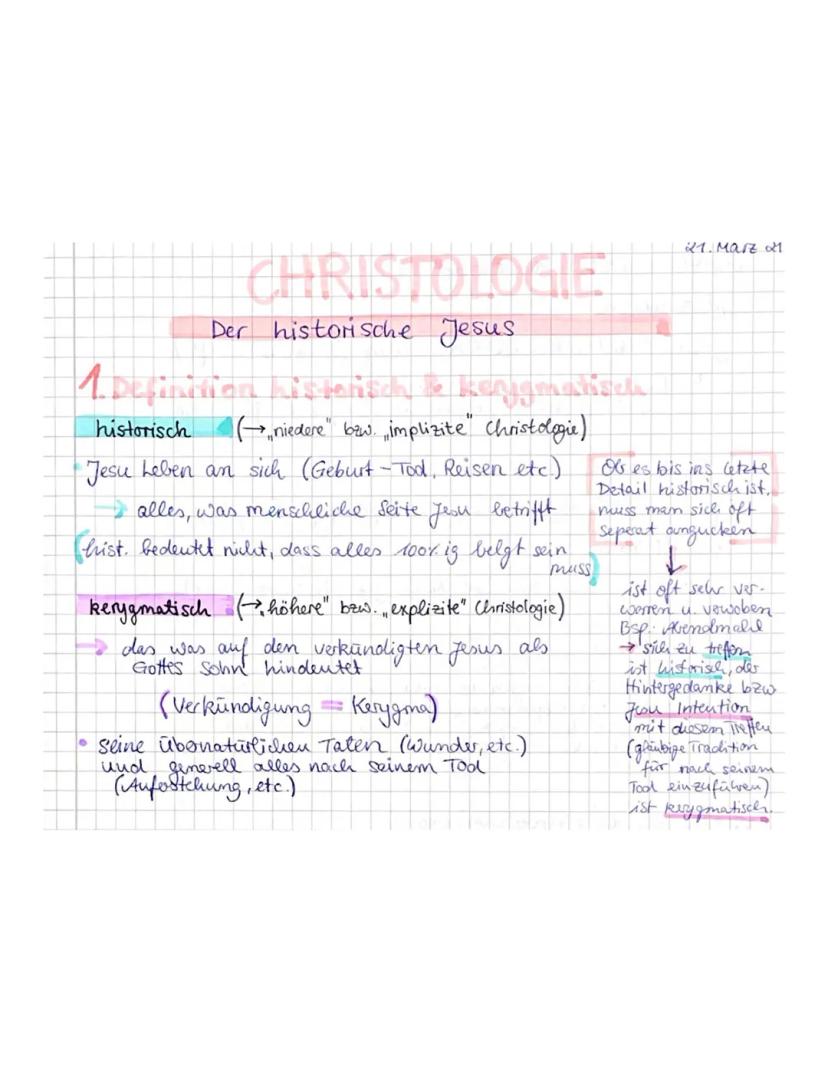 21. März 21
CHRISTOLOGIE
Der historische Jesus
1. Definition historisch & kerygmatisch
historisch (→ „niedere" bzw. „implizite" Christologie)
• Jesu Leben an sich (Geburt - Tod, Reisen etc.)
→ alles, was menschliche Seite Jesu betrifft
(hist. bedeutet nicht, dass alles 100%ig belgt sein
muss)
kerygmatisch (→ „höhere" bzw. „explizite" Christologie)
→ das was auf den verkündigten Jesus als
Gottes Sohn hindeutet
(Verkündigung = Kerygma)
• seine übernatürlichen Taten (Wunder, etc.)
und generell alles nach seinem Tod
(Auferstehung, etc.)
Ob es bis ins letzte
Detail historisch ist,
muss man sich oft
seperat angucken
↓
ist oft sehr ver-
worren u. verwoben
Bsp.: Abendmahl
→ sich zu treffen
ist historisch, der
Hintergedanke bzw
Jesu Intention
mit diesem Treffen
(gläubige Tradition
für nach seinem
Tod einzuführen)
ist kerygmatisch.